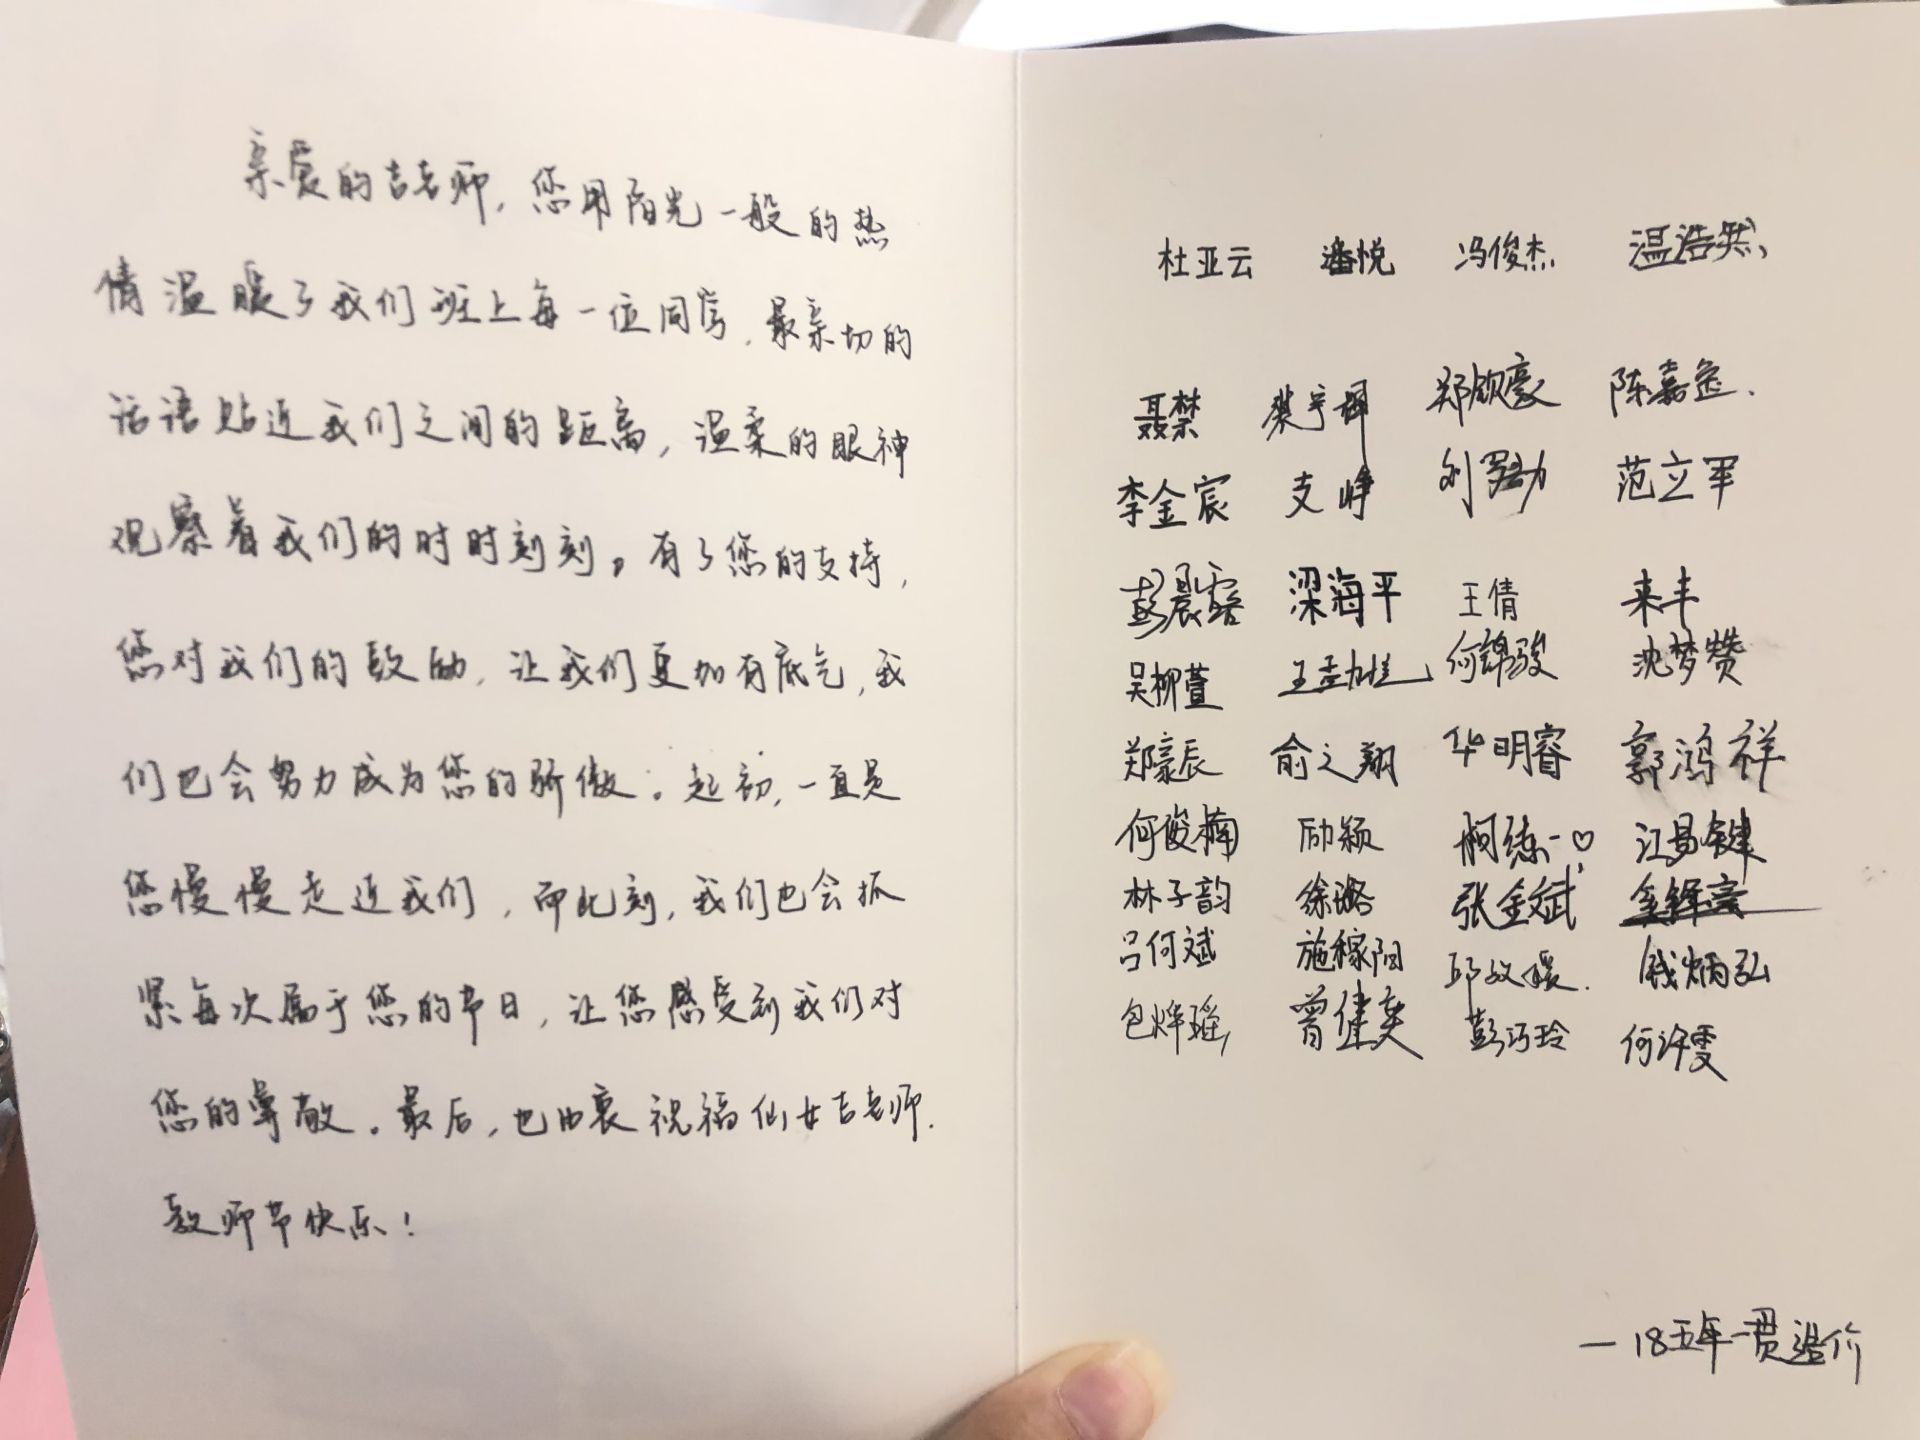 亲爱的吉老师，您用阳光一般的热
情温暖了我们班上每一位同学，最亲切的
话语贴近我们之间的距离，温柔的眼神
观察着我们的时时刻刻。有了您的支持，
您对我们的鼓励，让我们更加有底气，我
们也会努力成为您的骄傲。起初，一直是
您慢慢走近我们，而此刻，我们也会抓
紧每次属于您的节日，让您感受到我们对
您的尊敬。最后，也由衷祝福仙女吉老师.
教师节快乐！
杜亚云 潘悦 冯俊杰 温浩然
聂棼 裘宇铎 郑钦豪 陈嘉逸.
李金宸 支峥 范立军
彭晨露 梁海平 王倩 来丰
吴柳萱 何锦骏 沈梦赞
郑豪辰 俞之翔 华明睿 郭鸿祥
何俊楠 励颖 柯练一♡ 江易键
林子韵 徐璐 张金斌
吕何斌 施稼阳 邱玟媛. 钱炳弘
包烨瑶 曾健英 彭巧玲 何许雯
—18五年一贯造价